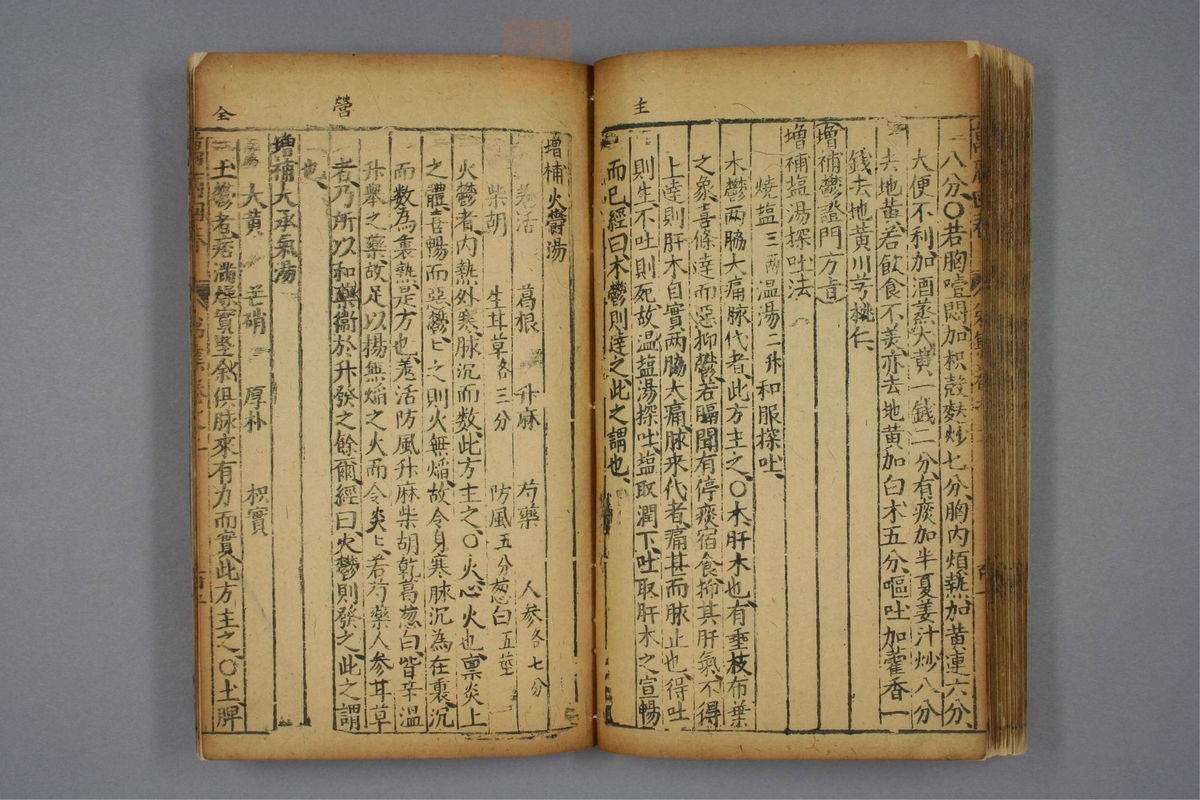 主
八分○若胸噎悶加枳殼麩炒七分胸內煩熱加黃連六分
大便不利加酒蒸大黃一錢二分有痰加半夏姜汁炒八分
去地黃若飲食不美亦去地黃加白朮五分嘔吐加藿香一
錢去地黃川芎桃仁
增補鬱證門方
增補塩湯探吐法
燒塩三兩温湯二升和服探吐
木鬱兩脇大痛脉代者此方主之○木肝木也有垂枝布葉
之象喜條達而惡抑鬱若膈間有停痰宿食抑其肝氣不得
上達則肝木自實兩脇大痛脉来代者痛甚而脉止也得吐
則生不吐則死故温塩湯探吐塩取潤下吐取肝木之宣暢
而已經曰木鬱則達之此之謂也
營
全
增補火鬱湯
羗活 葛根 升麻 芍藥 人参各七分
柴胡 生甘草各三分 防風五分葱白五莖
火鬱者內熱外寒脉沉而数此方主之○火心火也禀炎上
之體喜暢而惡鬱〻之則火無熖故令身寒脉沉為在裏沉
而数為裏熱是方也羗活防風升麻柴胡乾葛葱白皆辛温
升舉之藥故足以揚無熖之火而令炎上若芍藥人参甘草
者乃所以和榮衞於升發之餘爾經曰火鬱則發之此之謂
也
增補大承氣湯
大黃 芒硝 厚朴 枳實
土鬱者痞滿燥實堅全俱脉来有力而實此方主之○土脾